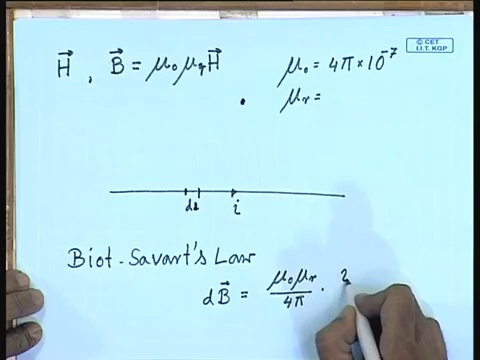 © CET
I.I.T. KGP
H⃗ , B⃗ = μ₀μᵣH⃗
μ₀ = 4π×10⁻⁷
μᵣ =
dl i
Biot-Savart's Law
dB⃗ = μ₀μᵣ/4π ·